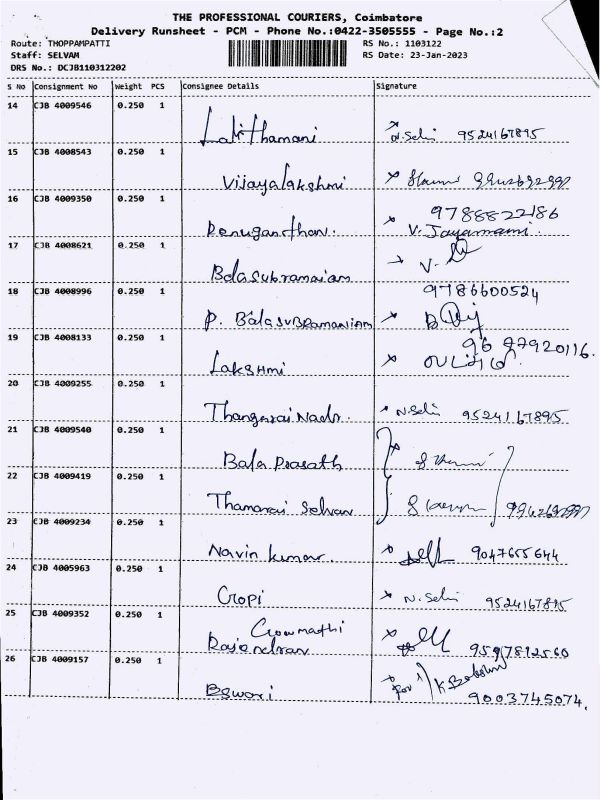 THE PROFESSIONAL COURIERS, Coimbatore
Delivery Runsheet - PCM - Phone No.:0422-3505555 - Page No.:2
Route: THOPPAMPATTI RS No.: 1103122
Staff: SELVAM RS Date: 23-Jan-2023
DRS No.: DCJB110312202
S No Consignment No Weight PCS Consignee Details Signature
14 CJB 4009546 0.250 1
Lalithamani N. Selvi 9524167895
15 CJB 4008543 0.250 1
Vijayalakshmi
16 CJB 4009350 0.250 1
9788822186
V. Jayamani
17 CJB 4008621 0.250 1
Balasubramaiam V.
18 CJB 4008996 0.250 1
9786600524
P. Balasubramaniam
19 CJB 4008133 0.250 1
9677920116.
Lakshmi
20 CJB 4009255 0.250 1
N. Selvi 9524167895
21 CJB 4009540 0.250 1
Bala Prasath
22 CJB 4009419 0.250 1
Thamarai Selvan
23 CJB 4009234 0.250 1
Navin kumar. 9047655644
24 CJB 4005963 0.250 1
Gopi N. Selvi 9524167895
25 CJB 4009352 0.250 1
Gowmathi
Rajendran 9597812560
26 CJB 4009157 0.250 1
for K.
Eswari 9003745074.